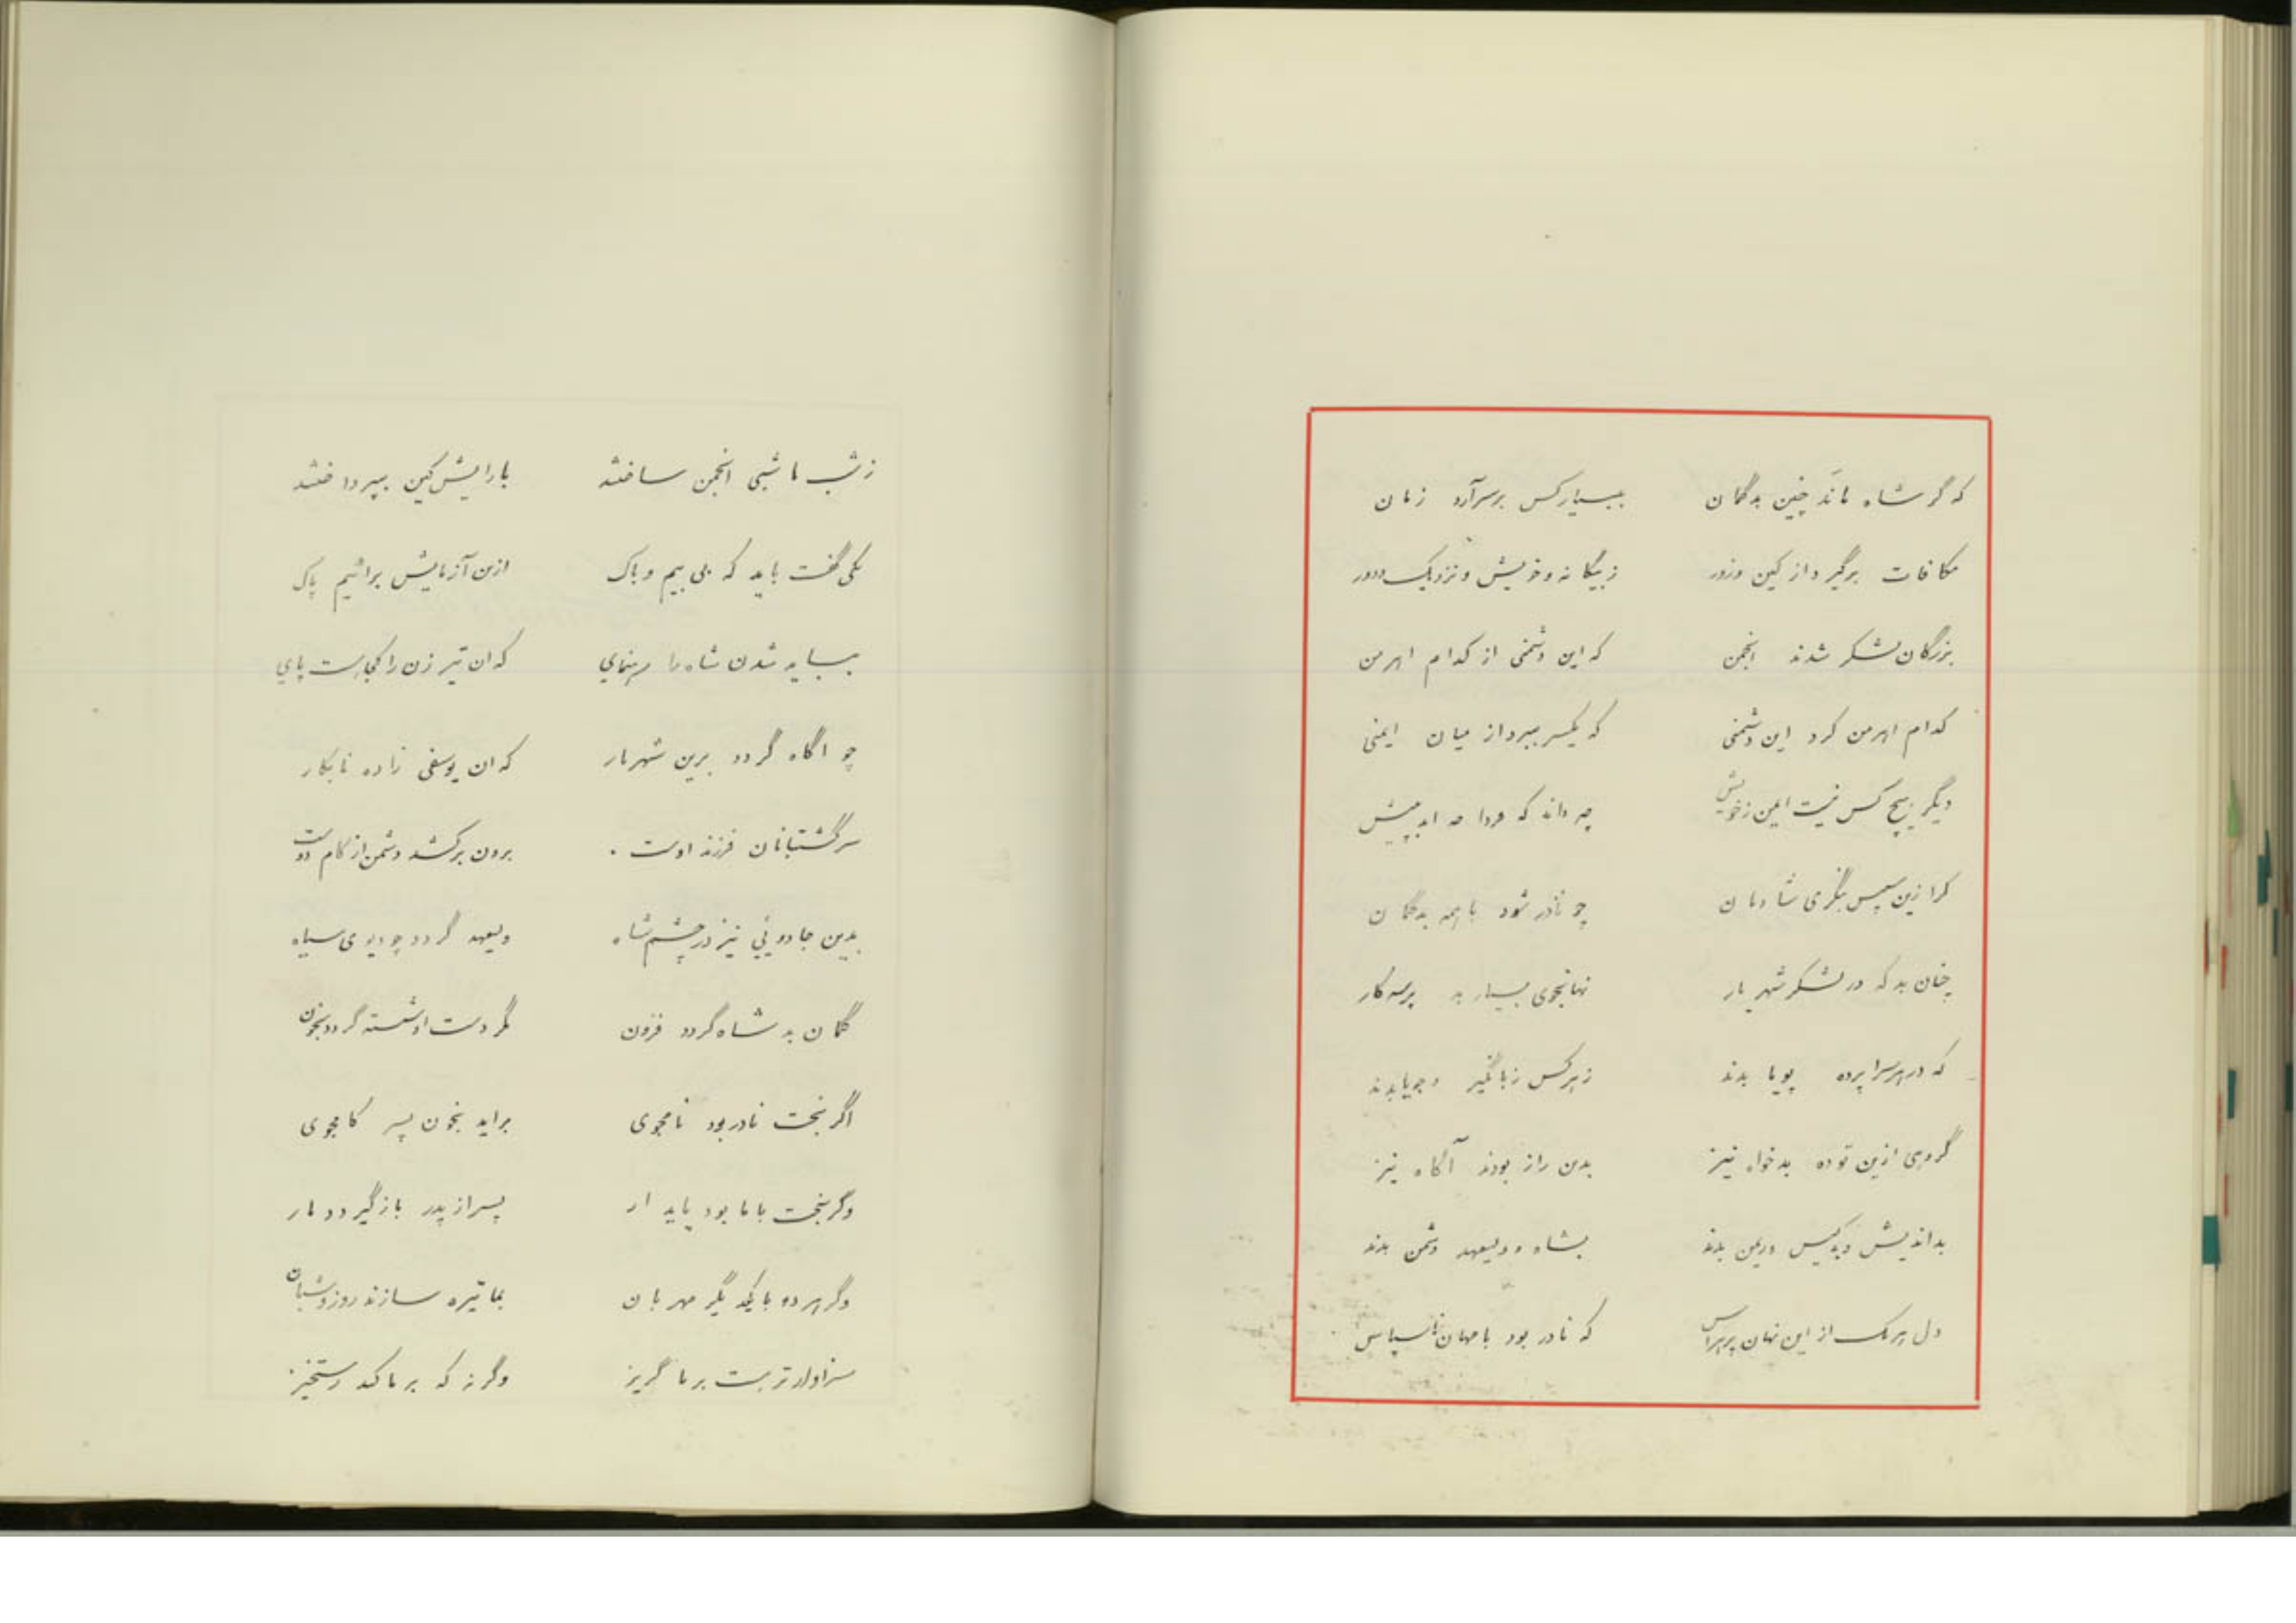 که گر شاه ماند چنین بدگمان ببسیار کس بر سر آرد زمان
مکافات برگیرد از کین و زور ز بیگانه و خویش و نزدیک و دور
بزرگان لشکر شدند انجمن که این دشمنی از کدام اهرمن
کدام اهرمن کرد این دشمنی که یکسر ببرد از میان ایمنی
دیگر هیچ کس نیست ایمن ز خویش چه داند که فردا چه اید بپیش
کرا زین سپس بنگری شادمان چو نادر شود با همه بدگمان
چنان بد که در لشکر شهریار نهانجوی بسیار بد
که در هر سراپرده پویا بدند ز هر کس زبانگیر و جویا بدند
گروهی ازین توده بدخواه نیز بدین راز بودند آگاه نیز
بداندیش و بدکیش و ریمن بدند بشاه و ولیعهد دشمن بدند
دل هر یک از این نهان پر هراس که نادر بود با مهان ناسپاس
ز شب ها شبی انجمن ساختند بارایش کین بپرداختند
یکی گفت باید که بی بیم و باک ازین آزمایش برائیم پاک
بباید شدن شاه را رهنمای که ان تیر زن را کجاست پای
چو اگاه گردد برین شهریار که ان یوسفی زاده نابکار
سر گشتبانان فرزند اوست برون برکشد دشمن از کام دوست
بدین جادوئی نیز در چشم شاه ولیعهد گردد چو دیوی سیاه
گمان بد شاه گردد فزون مگر دست او شسته گردد بخون
اگر بخت نادر بود نامجوی براید بخون پسر کامجوی
وگر بخت با ما بود پایدار پسر از پدر باز گیرد دمار
وگر هر دو با یکدیگر مهربان بما تیره سازند روز و شبان
سزاوارتر هست بر ما گریز وگرنه که بر ما کند رستخیز